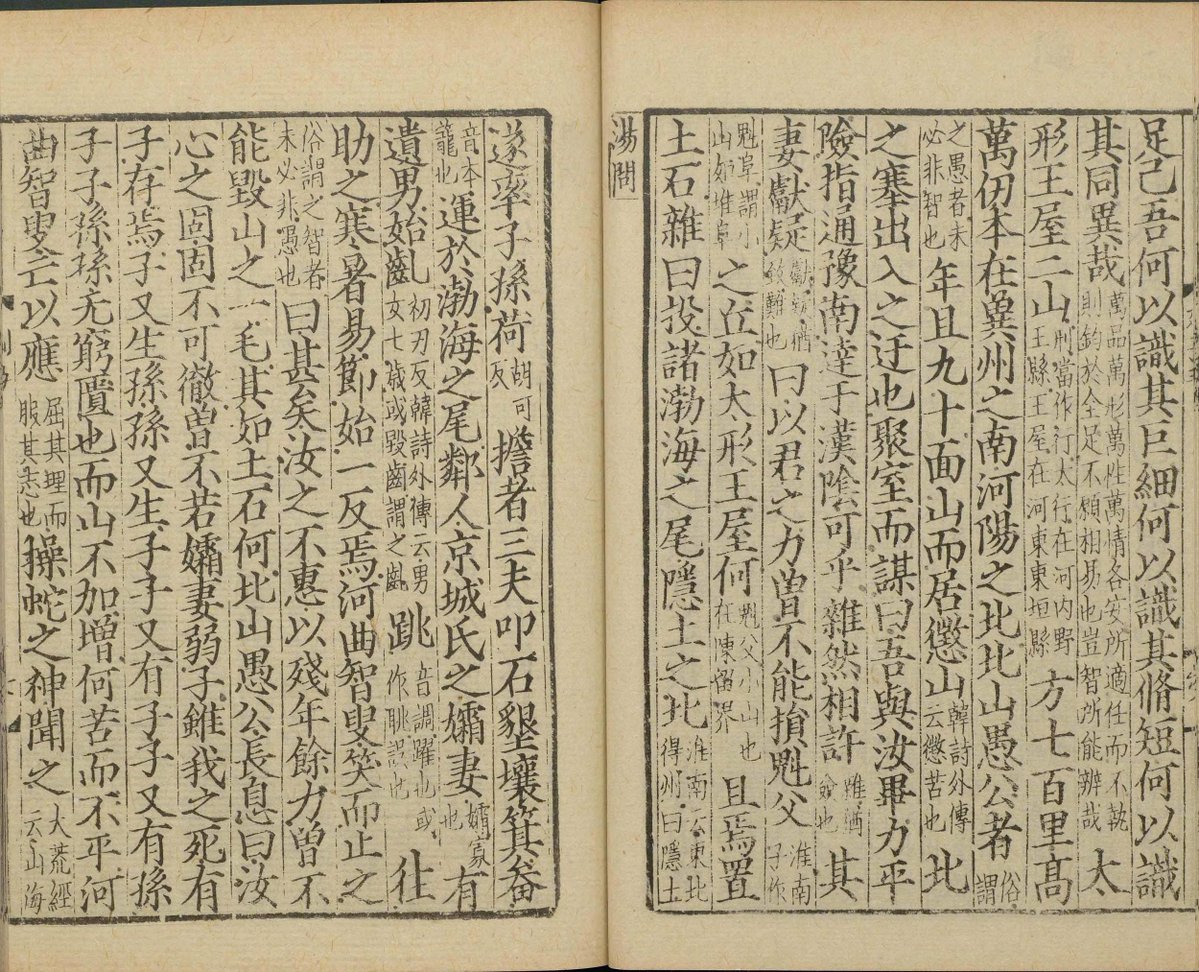 足已吾何以識其巨細何以識其脩短何以識
其同異哉萬品萬形萬性萬情各安所適任而不執則鈞於全足不願相易也豈智所能辨哉太
形王屋二山形當作行太行在河內野王縣王屋在河東東垣縣方七百里髙
萬仞本在冀州之南河陽之北北山愚公者俗謂
之愚者未必非智也年且九十面山而居懲山韓詩外傳云懲苦也北
之塞出入之迂也聚室而謀曰吾與汝畢力平
險指通豫南達于漢陰可乎雜然相許雜猶僉也其
妻獻疑獻疑猶致難也曰以君之力曾不能損魁父淮南子作
魁阜謂小山如堆阜之丘如太形王屋何魁父小山也在陳留界且焉置
土石雜曰投諸渤海之尾隱土之北淮南云東北得州曰隱土
湯問
遂率子孫荷胡可反擔者三夫叩石墾壤箕畚
音本籠也運於渤海之尾鄰人京城氏之孀妻孀寡也有
遺男始齔初刃反韓詩外傳云男女七歲或毀齒謂之齔跳音調躍也或作眺誤也往
助之寒暑易節始一反焉河曲智叟笑而止之
俗謂之智者未必非愚也曰甚矣汝之不惠以殘年餘力曽不
能毀山之一毛其如土石何北山愚公長息曰汝
心之固固不可徹曽不若孀妻弱子雖我之死有
子存焉子又生孫孫又生子子又有子子又有孫
子子孫孫无窮匱也而山不加增何苦而不平河
曲智叟亡以應屈其理而服其志也操蛇之神聞之大荒經云山海